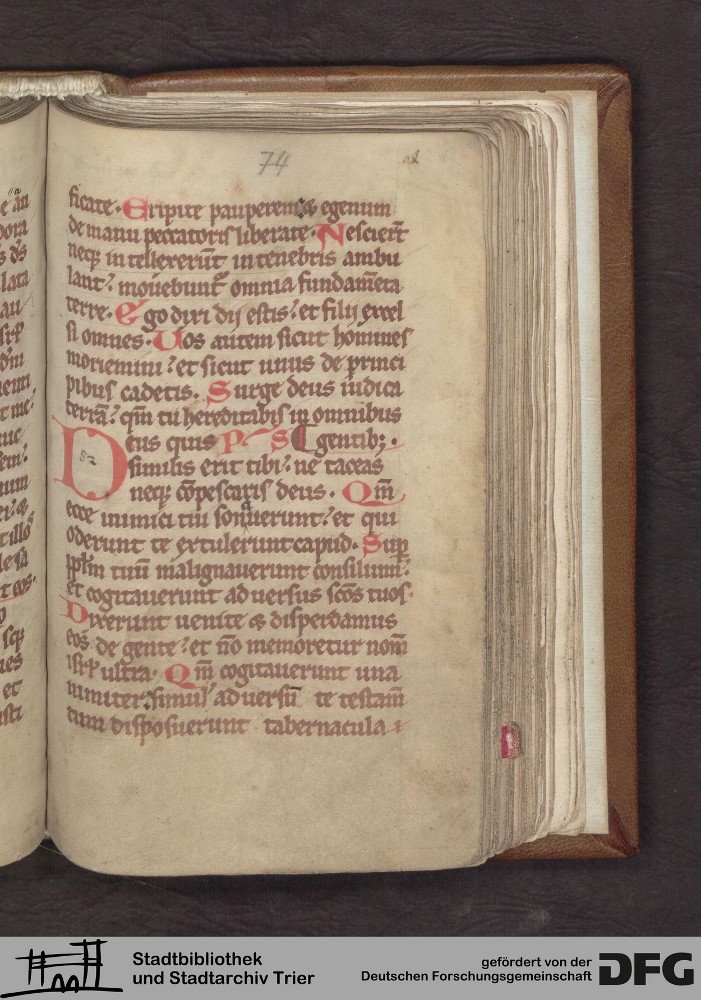 74
ficate. Eripite pauperem & egenum
de manu peccatoris liberate. Nescierūt
neq; intellexerūt in tenebris ambu
lant: mouebunt᷑ omnia fundam̄ta
terre. Ego dixi dij estis: et filij excel
si omnes. Uos autem sicut homines
moriemini: et sicut unus de princi
pibus cadetis. Surge deus iudica
terrā: qm̄ tu hereditabis in omnibus
Deus quis PS gentib;.
82
similis erit tibi: ne taceas
neq; cōpescaris deus. Qm̄
ecce inimici tui sonauerunt: et qui
oderunt te extulerunt capud. Sup
pplm tuū malignauerunt consilium:
et cogitauerunt aduersus scōs tuos.
Dixerunt uenite & disperdamus
eos de gente: et nō memoretur nom̄
isrl̄ ultra. Qm̄ cogitauerunt una
nimiter simul aduersū te testam̄
tum disposuerunt tabernacula i
Stadtbibliothek
und Stadtarchiv Trier
gefördert von der
Deutschen Forschungsgemeinschaft DFG